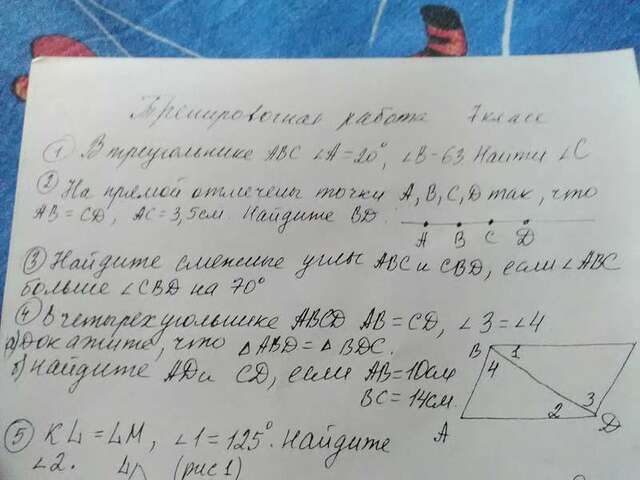 Тренировочная работа 7 класс
① В треугольнике ABC ∠A=20°, ∠B-63. Найти ∠C
② На прямой отмечены точки A, B, C, D так, что
AB=CD, AC=3,5см. Найдите BD.
A B C D
③ Найдите смежные углы ABC и CBD, если ∠ABC
больше ∠CBD на 70°
④ В четырехугольнике ABCD AB=CD, ∠3=∠4
а) Докажите, что △ABD=△BDC.
б) Найдите AD и CD, если AB=10см
BC=14см.
B 1
4
3
2
A D
⑤ KL=LM, ∠1=125°. Найдите
∠2. (рис 1)